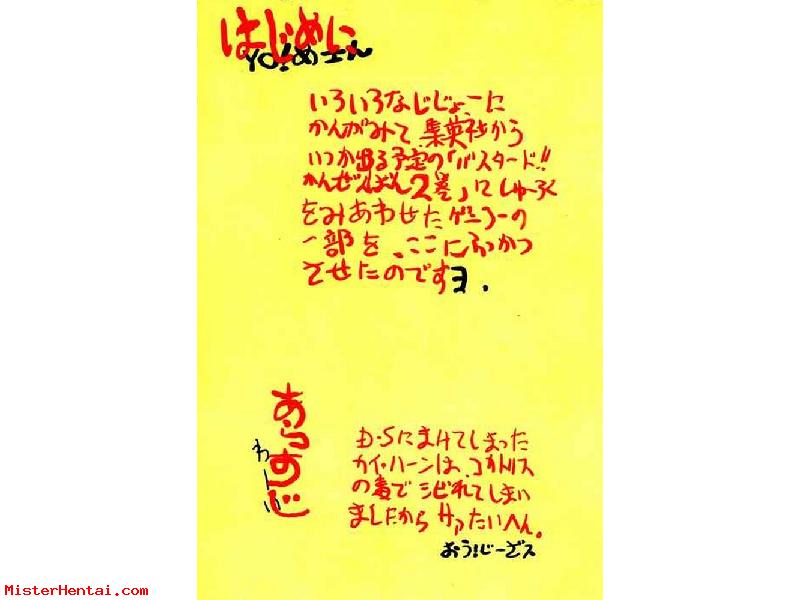 はじめに
YO!めェん
いろいろなじじょーに
かんがみて、集英社から
いつか出る予定の「バスタード!!
かんぜんばん2巻」にしゅーろく
をみあわせたゲンコーの
一部を、ここにふっかつ
させたのですヨ.
あらすじ
D・Sにまけてしまった
カイ・ハーンは、コカトリス
の毒でシビれてしまい
ましたからサアたいへん。
おう!じーざス
MisterHentai.com